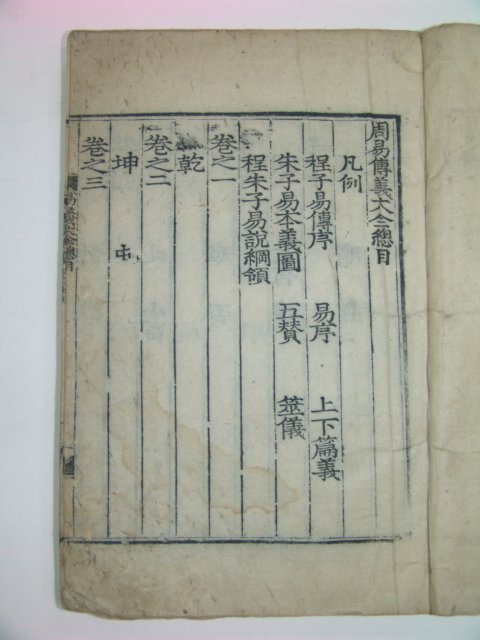 周易傳義大全總目
凡例
程子易傳序 易序 上下篇義
朱子易本義圖 五贊 筮儀
程朱子易說綱領
卷之一
乾
卷之二
坤 屯
卷之三
周易傳義大全總目